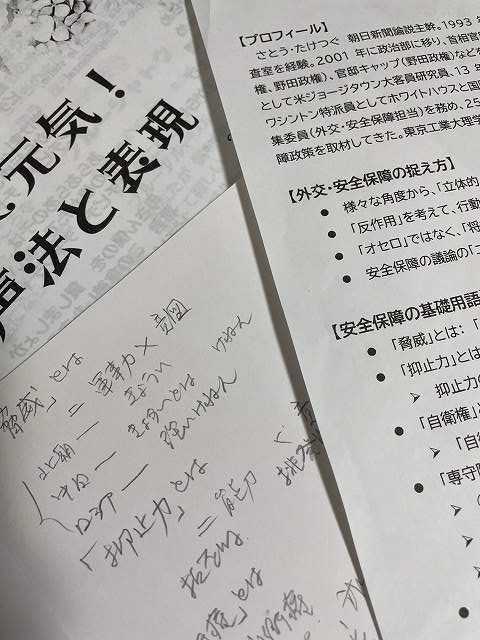 元気！
声法と表現
【プロフィール】
さとう・たけつぐ 朝日新聞論説主幹。1993
査室を経験。2001 年に政治部に移り、首相官
権、野田政権）、官邸キャップ（野田政権）など
として米ジョージタウン大客員研究員、13 年
ワシントン特派員としてホワイトハウスと国
集委員（外交・安全保障担当）を務め、25
障政策を取材してきた。東京工業大理学
【外交・安全保障の捉え方】
● 様々な角度から、「立体的
● 「反作用」を考えて、行動
● 「オセロ」ではなく、「将
● 安全保障の議論の「コ
【安全保障の基礎用語
● 「脅威」とは：「
● 「抑止力」とは
➢ 抑止力の
● 「自衛権」と
➢ 「自
● 「専守防
脅威」とは
＝軍事力×意図
北朝 ― きょうい
中国 ― きょういとは けねん
ロシア ― 強いけねん
「抑止力」とは
＝能力
とは